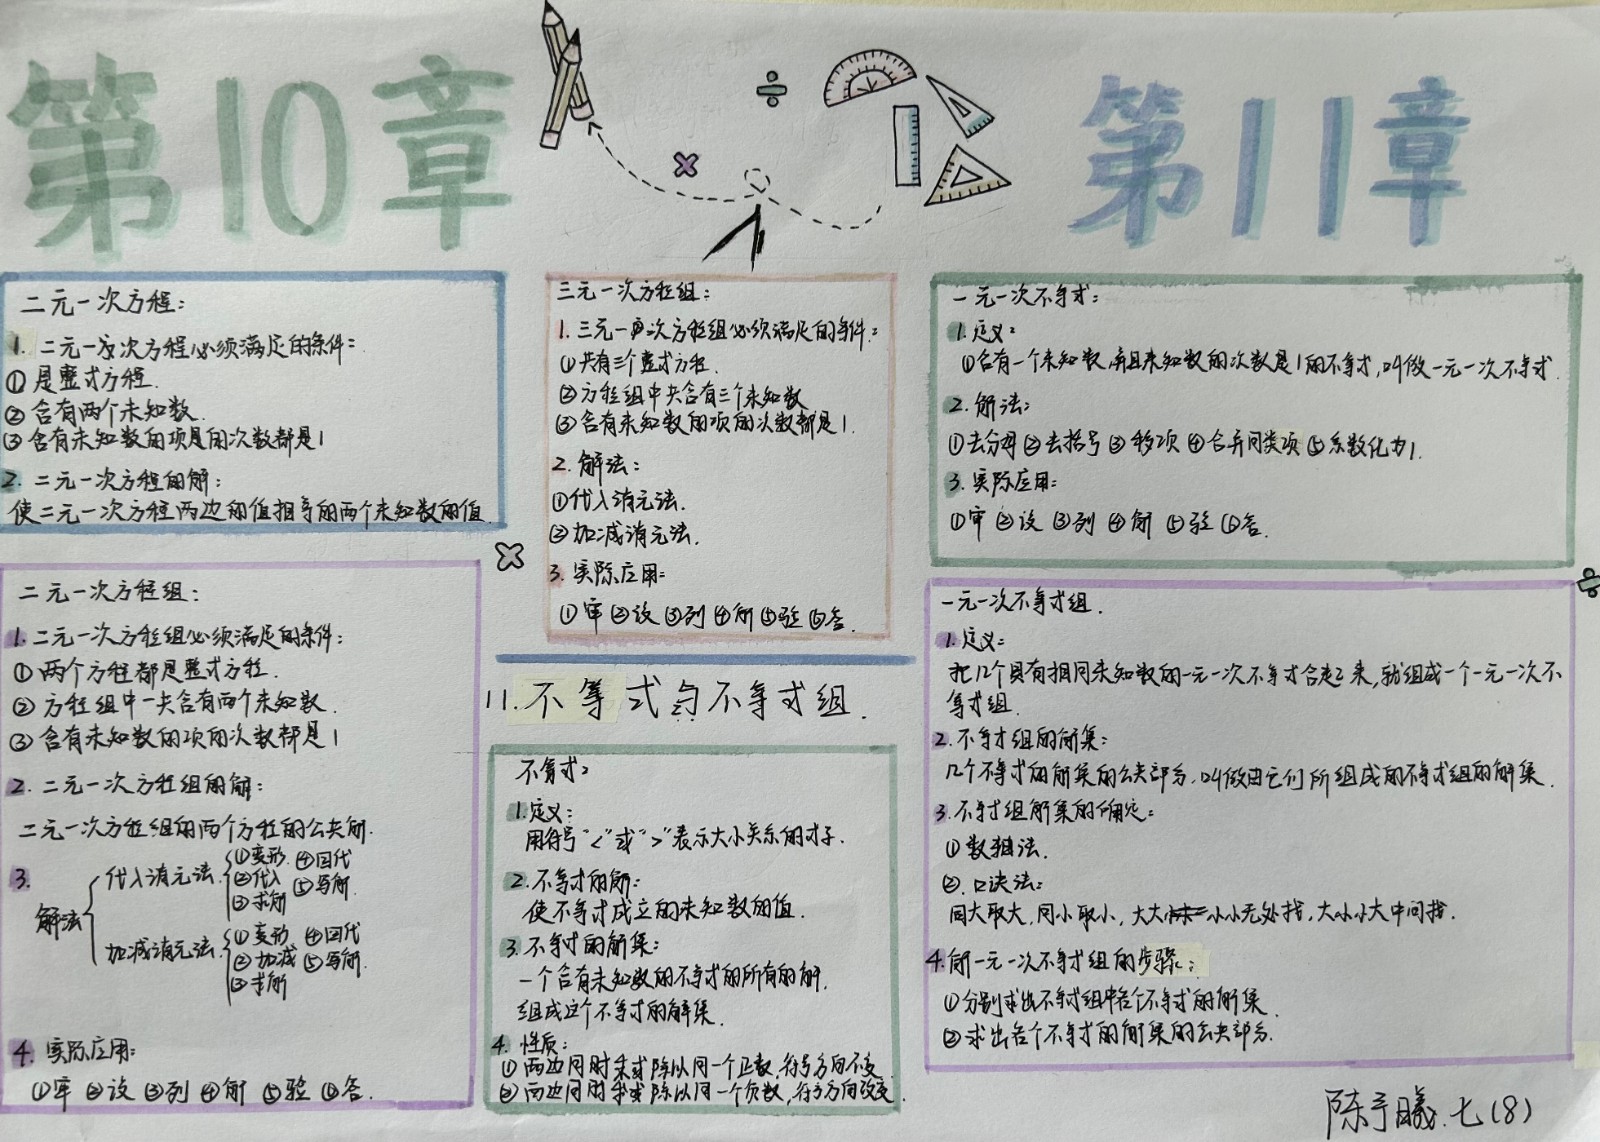 第10章
第11章
二元一次方程:
1. 二元一次方程必须满足的条件:
① 是整式方程.
② 含有两个未知数.
③ 含有未知数的项是的次数都是1
2. 二元一次方程的解:
使二元一次方程两边的值相等的两个未知数的值.
二元一次方程组:
1. 二元一次方程组必须满足的条件:
① 两个方程都是整式方程.
② 方程组中一共含有两个未知数.
③ 含有未知数的项的次数都是1
2. 二元一次方程组的解:
二元一次方程组的两个方程的公共解.
3.
解法
代入消元法
①变形 ④回代
②代入 ⑤写解.
③求解
加减消元法
①变形 ④回代
②加减 ⑤写解.
③求解
4. 实际应用:
①审 ②设 ③列 ④解 ⑤验 ⑥答.
三元一次方程组:
1. 三元一次方程组必须满足的条件:
①共有三个整式方程.
②方程组中共含有三个未知数
③含有未知数的项的次数都是1.
2. 解法:
①代入消元法.
②加减消元法.
3. 实际应用:
①审 ②设 ③列 ④解 ⑤验 ⑥答.
11. 不等式与不等式组.
不等式:
1. 定义:
用符号“<”或“>”表示大小关系的式子.
2. 不等式的解:
使不等式成立的未知数的值.
3. 不等式的解集:
一个含有未知数的不等式的所有的解,
组成这个不等式的解集.
4. 性质:
①两边同时乘或除以同一个正数,符号方向不变
②两边同时乘或除以同一个负数,符号方向改变
一元一次不等式:
1. 定义:
①含有一个未知数,并且未知数的次数是1的不等式,叫做一元一次不等式.
2. 解法:
①去分母 ②去括号 ③移项 ④合并同类项 ⑤系数化为1.
3. 实际应用:
①审 ②设 ③列 ④解 ⑤验 ⑥答.
一元一次不等式组.
1. 定义:
把几个具有相同未知数的一元一次不等式合起来,就组成一个一元一次不
等式组.
2. 不等式组的解集:
几个不等式的解集的公共部分,叫做由它们所组成的不等式组的解集.
3. 不等式组解集的确定:
①数轴法.
②. 口诀法:
同大取大,同小取小,大大小小无处找,大小小大中间找.
4. 解一元一次不等式组的步骤:
①分别求出不等式组中各个不等式的解集.
②求出各个不等式的解集的公共部分.
陈于曦.七(8)